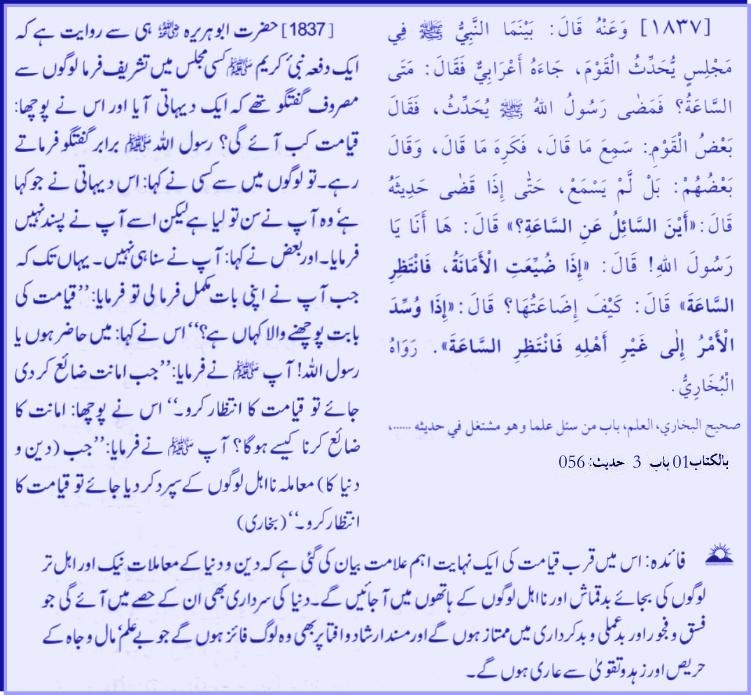 [١٨٣٧] وَعَنْهُ قَالَ: بَيْنَمَا النَّبِيُّ ﷺ فِي
مَجْلِسٍ يُحَدِّثُ الْقَوْمَ، جَاءَهُ أَعْرَابِيٌّ فَقَالَ: مَتَى
السَّاعَةُ؟ فَمَضَى رَسُولُ اللهِ ﷺ يُحَدِّثُ، فَقَالَ
بَعْضُ الْقَوْمِ: سَمِعَ مَا قَالَ، فَكَرِهَ مَا قَالَ، وَقَالَ
بَعْضُهُمْ: بَلْ لَمْ يَسْمَعْ، حَتَّى إِذَا قَضَى حَدِيثَهُ
قَالَ: «أَيْنَ السَّائِلُ عَنِ السَّاعَةِ؟» قَالَ: هَا أَنَا يَا
رَسُولَ اللهِ! قَالَ: «إِذَا ضُيِّعَتِ الْأَمَانَةُ، فَانْتَظِرِ
السَّاعَةَ» قَالَ: كَيْفَ إِضَاعَتُهَا؟ قَالَ: «إِذَا وُسِّدَ
الْأَمْرُ إِلَى غَيْرِ أَهْلِهِ فَانْتَظِرِ السَّاعَةَ». رَوَاهُ
الْبُخَارِيُّ.
صحيح البخاري، العلم، باب من سئل علما وهو مشتغل في حديثه ......،
بالکتاب01 باب 3 حدیث: 056
[1837] حضرت ابو ہریرہ ﷜ ہی سے روایت ہے کہ
ایک دفعہ نبیٔ کریم ﷺ کسی مجلس میں تشریف فرما لوگوں سے
مصروف گفتگو تھے کہ ایک دیہاتی آیا اور اس نے پوچھا:
قیامت کب آئے گی؟ رسول اللہ ﷺ برابر گفتگو فرماتے
رہے۔ تو لوگوں میں سے کسی نے کہا: اس دیہاتی نے جو کہا
ہے، وہ آپ نے سن تو لیا ہے لیکن اسے آپ نے پسند نہیں
فرمایا۔ اور بعض نے کہا: آپ نے سنا ہی نہیں۔ یہاں تک کہ
جب آپ نے اپنی بات مکمل فرما لی تو فرمایا: ”قیامت کی
بابت پوچھنے والا کہاں ہے؟“ اس نے کہا: میں حاضر ہوں یا
رسول اللہ! آپ ﷺ نے فرمایا: ”جب امانت ضائع کر دی
جائے تو قیامت کا انتظار کرو۔“ اس نے پوچھا: امانت کا
ضائع کرنا کیسے ہوگا؟ آپ ﷺ نے فرمایا: ”جب (دین و
دنیا کا) معاملہ نا اہل لوگوں کے سپرد کر دیا جائے تو قیامت کا
انتظار کرو۔“ (بخاری)
فائدہ: اس میں قرب قیامت کی ایک نہایت اہم علامت بیان کی گئی ہے کہ دین و دنیا کے معاملات نیک اور اہل تر
لوگوں کی بجائے بدقماش اور نا اہل لوگوں کے ہاتھوں میں آجائیں گے۔ دنیا کی سرداری بھی ان کے حصے میں آئے گی جو
فسق و فجور اور بدعملی و بدکرداری میں ممتاز ہوں گے اور مسند ارشاد و افتا پر بھی وہ لوگ فائز ہوں گے جو بے علم، مال و جاہ کے
حریص اور زہد و تقویٰ سے عاری ہوں گے۔